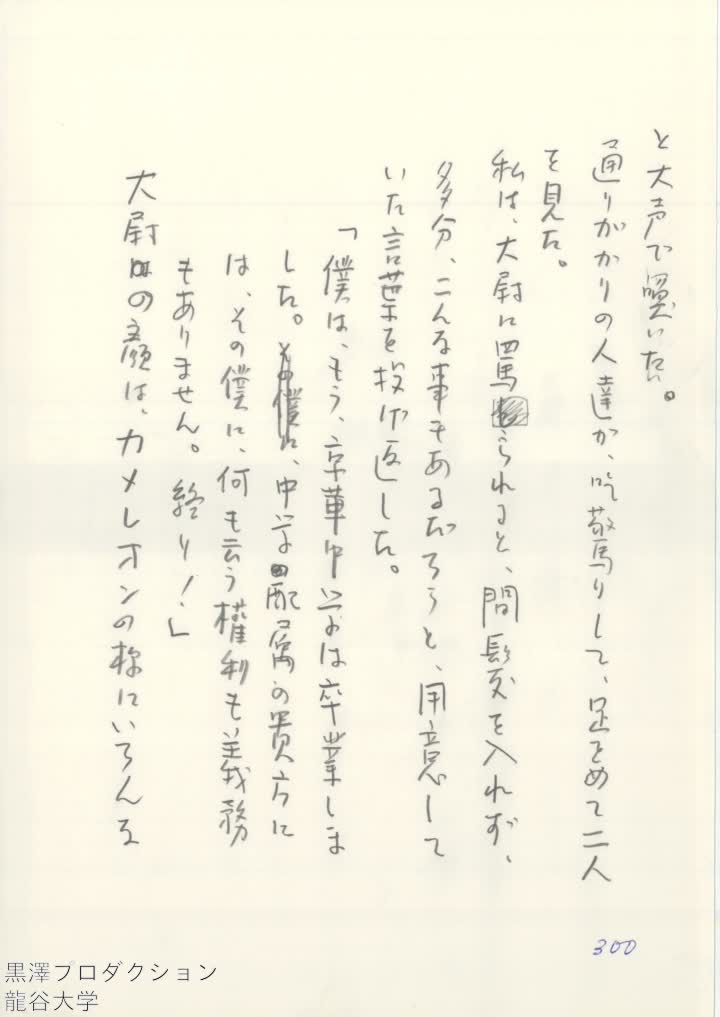 と大声で嘆いた。
通りがかりの人達が、吃驚りして、足をとめて二人
を見た。
私は、大尉に罵られると、間髪を入れず、
多分、こんな事もあるだろうと、用意して
いた言葉を投げ返した。
「僕は、もう、京華中学は卒業しま
した。中学配属の貴方に
は、その僕に、何も云う權利も義務
もありません。終り！」
大尉の顔は、カメレオンの様にいろんな
300
黒澤プロダクション
龍谷大学